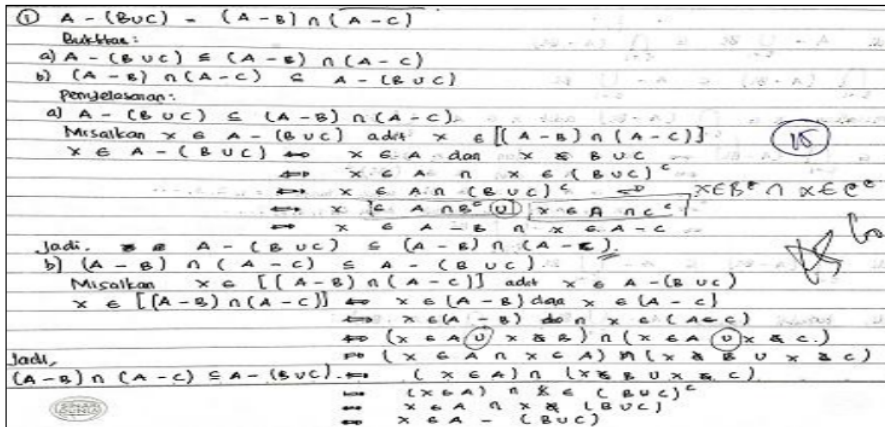 ① A - (B∪C) = (A-B) ∩ (A-C)
Buktikan:
a) A - (B ∪ C) ⊆ (A-B) ∩ (A-C)
b) (A - B) ∩ (A-C) ⊆ A - (B ∪ C)
Penjelasan:
a) A - (B ∪ C) ⊆ (A-B) ∩ (A-C).
Misalkan x ∈ A - (B ∪ C) adit x ∈ [(A-B) ∩ (A-C)] 15
x ∈ A - (B ∪ C) ⟺ x ∈ A dan x ∉ B ∪ C
⟺ x ∈ A ∩ x ∈ (B ∪ C)ᶜ
⟺ x ∈ A ∩ (B ∪ C)ᶜ ⟺ x∈Bᶜ ∩ x∈Cᶜ
⟺ x ∈ A ∩ Bᶜ ∪ x ∈ A ∩ Cᶜ
⟺ x ∈ A - B ∩ x ∈ A - C
Jadi. A - (B ∪ C) ⊆ (A - B) ∩ (A - C).
b) (A - B) ∩ (A - C) ⊆ A - (B ∪ C).
Misalkan x ∈ [(A - B) ∩ (A - C)] adit x ∈ A - (B ∪ C)
x ∈ [(A - B) ∩ (A - C)] ⟺ x ∈ (A - B) dan x ∈ (A - C)
⟺ x ∈ (A - B) ∩ x ∈ (A - C)
⟺ (x ∈ A ∪ x ∉ B) ∩ (x ∈ A ∪ x ∉ C.)
⟺ (x ∈ A ∩ x ∈ A) ∩ (x ∉ B ∪ x ∉ C)
Jadi,
(A - B) ∩ (A - C) ⊆ A - (B∪C). ⟺ (x ∈ A) ∩ (x ∉ B ∪ x ∉ C)
⟺ (x ∈ A) ∩ x ∈ (B ∪ C)ᶜ
⟺ x ∈ A ∩ x ∉ (B ∪ C)
⟺ x ∈ A - (B ∪ C)
SINAR DUNIA